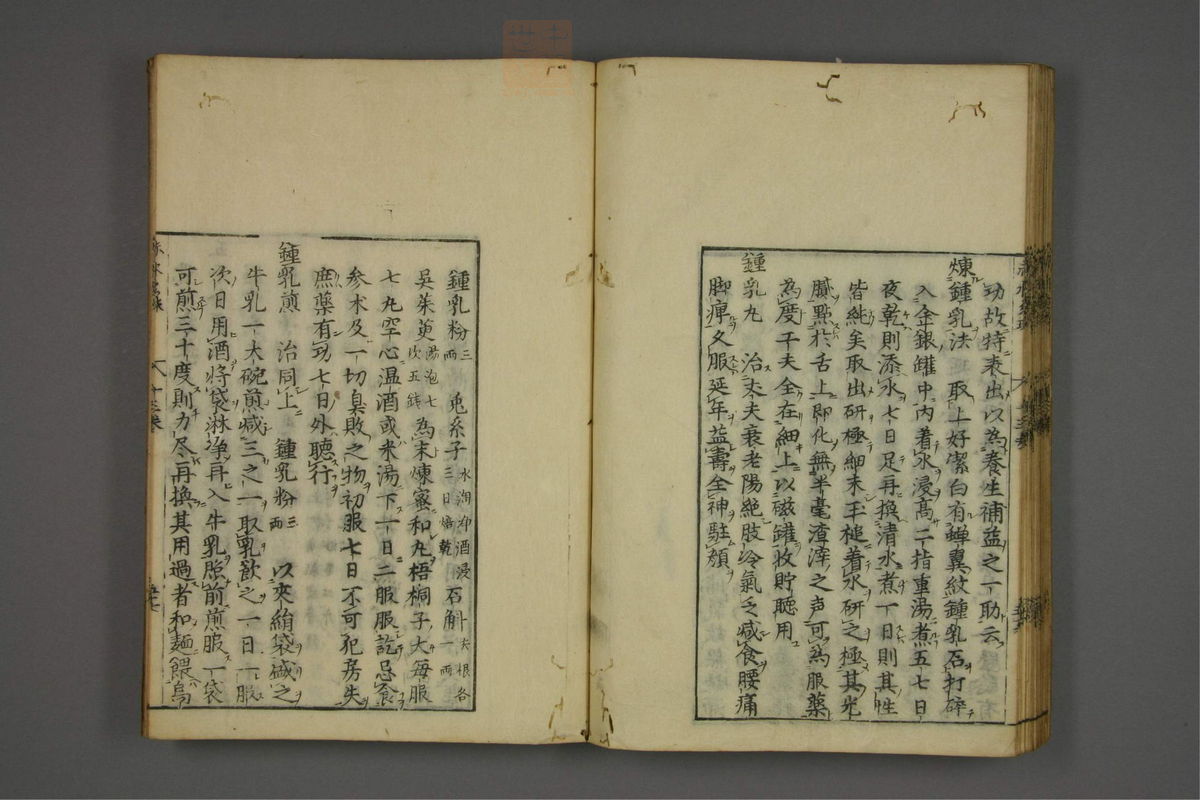 功故特表出以為養生補益之一助云
煉鍾乳法 取上好潔白有蟬翼紋鍾乳石打碎
入金銀罐中内着水浸高二指重湯煮五七日
夜乾則添水七日足再換清水煮一日則其性
皆純矣取出研極細末玉槌着水研之極其光
膩點於舌上即化無半毫渣滓之声可為服藥
為度干夫全在細上以磁罐收貯聴用
鍾乳丸 治丈夫衰老陽絶肢冷氣乏減食腰痛
脚痺久服延年益壽全神駐顔
鍾乳粉三両 兎糸子水淘净酒浸三日焙乾 石斛去根各一両
呉茱萸湯泡七次五錢 為末煉蜜和丸梧桐子大毎服
七丸空心温酒或米湯下一日二服服訖忌食
参术及一切臭敗之物初服七日不可犯房失
庶藥有功七日外聴行
鍾乳煎 治同上 鍾乳粉三両 以夾絹袋盛之
牛乳一大碗煎減三之一取乳飲之一日一服
次日用酒将袋淋净再入牛乳照前煎服一袋
可煎三十度則力尽再換其用過者和麺餵烏